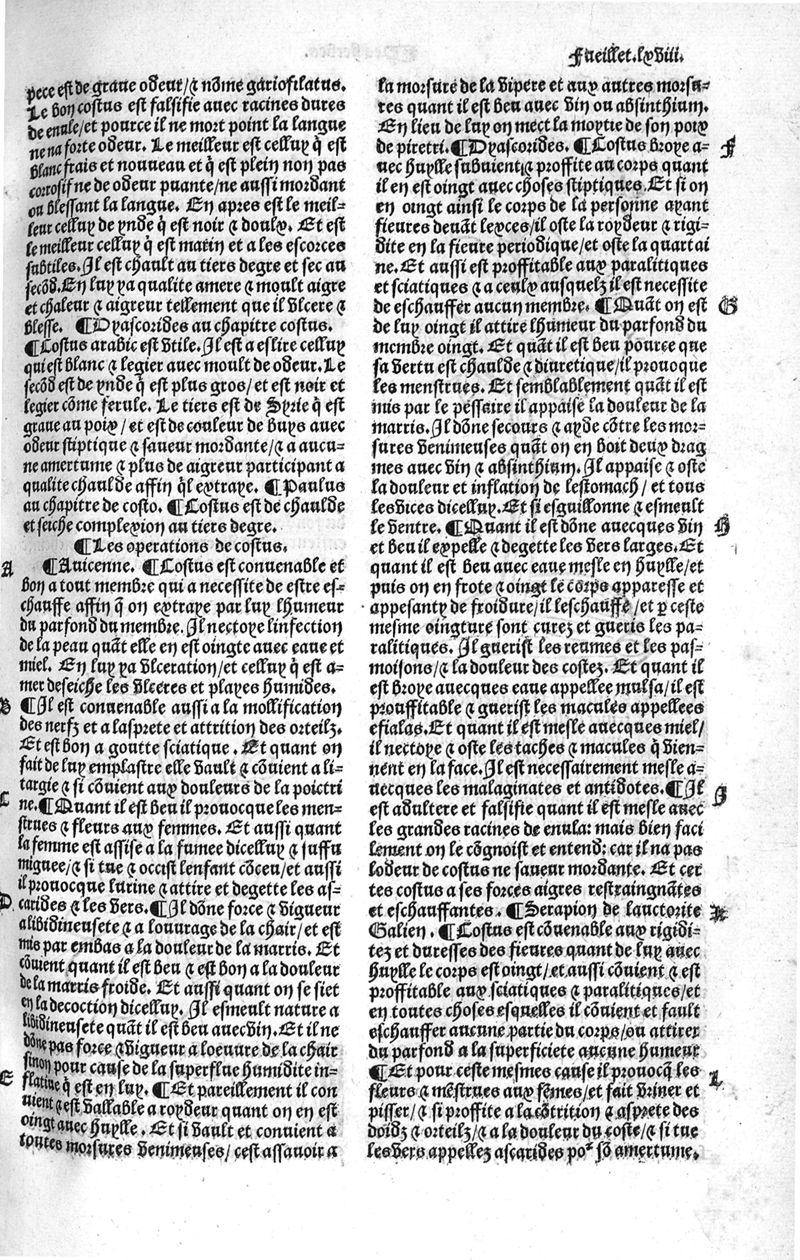 Fueillet.lxviii.
pece est de graue odeur/⁊ nõme gariofilatus.
Le bon costus est falsifie auec racines dures
de enule/et pource il ne mort point la langue
ne na forte odeur. Le meilleur est celluy q̃ est
blanc frais et nouueau et q̃ est plein non pas
corosif ne de odeur puante/ne aussi mordant
ou blessant la langue. En apres est le meil⸗
leur celluy de ynde q̃ est noir ⁊ doulx. Et est
le meilleur celluy q̃ est matin et a les escorces
subtiles. Il est chault au tiers degre et sec au
secõd. En luy ya qualite amere ⁊ moult aigre
et chaleur ⁊ aigreur tellement que il vlcere ⁊
blesse. ¶Dyascorides au chapitre costus.
¶Costus arabic est vtile. Il est a eslire celluy
qui est blanc ⁊ legier auec moult de odeur. Le
secõd est de ynde q̃ est plus gros/et est noir et
legier cõme ferule. Le tiers est de Syrie q̃ est
graue au poix/et est de couleur de buys auec
odeur stiptique ⁊ saueur mordante/⁊ a aucu⸗
ne amertume ⁊ plus de aigreur participant a
qualite chaulde affin q̃l extraye. ¶Paulus
au chapitre de costo. ¶Costus est de chaulde
et seiche complexion au tiers degre.
¶Les operations de costus.
A ¶Auicenne. ¶Costus est conuenable et
bon a tout membre qui a necessite de estre es⸗
chauffe affin q̃ on extraye par luy lhumeur
du parfond du membre. Il nectoye linfection
de la peau quãt elle en est oingte auec eaue et
miel. En luy ya vlceration/et celluy q̃ est a⸗
mer deseiche les vlceres et playes humides.
B ¶Il est conuenable aussi a la mollification
des nerfz et a lasprete et attrition des orteilz.
Et est bon a goutte sciatique. Et quant on
fait de luy emplastre elle vault ⁊ cõuient a li⸗
targie ⁊ si cõuient aux douleurs de la poictri
C ne. ¶Quant il est beu il prouocque les men⸗
strues ⁊ fleurs aux femmes. Et aussi quant
la femme est assise a la fumee dicelluy ⁊ suffu
miguee/⁊ si tue ⁊ occist lenfant cõceu/et aussi
il prouocque lurine ⁊ attire et degette les as⸗
D carides ⁊ les vers. ¶Il dõne force ⁊ vigueur
a libidineusete ⁊ a louurage de la chair/et est
mis par embas a la douleur de la marris. Et
cõuient quant il est beu ⁊ est bon a la douleur
de la marris froide. Et aussi quant on se siet
en la decoction dicelluy. Il esmeult nature a
libidineusete quãt il est beu auec vin. Et il ne
dõne pas force ⁊ vigueur a loeuure de la chair
sinon pour cause de la superflue humidite in⸗
E flatiue q̃ est en luy. ¶Et pareillement il con
uient ⁊ est vallable a roydeur quant on en est
oingt auec huylle. Et si vault et conuient a
toutes morsures venimeuses/cest assauoir a
la morsure de la vipere et aux autres morsu⸗
res quant il est beu auec vin ou absinthium.
En lieu de luy on mect la moytie de son poix
de piretri. ¶Dyascorides. ¶Costus broye a⸗ F
uec huylle subuient ⁊ proffite au corps quant
il en est oingt auec choses stiptiques. Et si on
en oingt ainsi le corps de la personne ayant
fieures deuãt leyces/il oste la roydeur ⁊ rigi⸗
dite en la fieure periodique/et oste la quartai
ne. Et aussi est proffitable aux paralitiques
et sciatiques ⁊ a ceulx ausquelz il est necessite
de eschauffer aucun membre. ¶Quãt on est G
de luy oingt il attire lhumeur du parfond du
membre oingt. Et quãt il est beu pource que
sa vertu est chaulde ⁊ diuretique/il prouoque
les menstrues. Et semblablement quãt il est
mis par le pessaire il appaise la douleur de la
marris. Il dõne secours ⁊ ayde cõtre les mor⸗
sures venimeuses quãt on en boit deux drag
mes auec vin ⁊ absinthium. Il appaise ⁊ oste
la douleur et inflation de lestomach/et tous
les vices dicelluy. Et si esguillonne ⁊ esmeult
le ventre. ¶Quant il est dõne auecques vin H
et beu il expelle ⁊ degette les vers larges. Et
quant il est beu auec eaue mesle en huylle/et
puis on en frote ⁊ oingt le corps apparesse et
appesanty de froidure/il leschauffe/et ꝑ ceste
mesme oingture sont curez et gueris les pa⸗
ralitiques. Il guerist les reumes et les pas⸗
moisons/⁊ la douleur des costez. Et quant il
est broye auecques eaue appellee mulsa/il est
prouffitable ⁊ guerist les macules appellees
efialas. Et quant il est mesle auecques miel/
il nectoye ⁊ oste les taches ⁊ macules q̃ vien⸗
nent en la face. Il est necessairement mesle a⸗
uecques les malaginates et antidotes. ¶Il J
est adultere et falsifie quant il est mesle auec
les grandes racines de enula: mais bien faci
lement on le cõgnoist et entend: car il na pas
lodeur de costus ne saueur mordante. Et cer
tes costus a ses forces aigres restraingnãtes
et eschauffantes. ¶Serapion de lauctorite K
Galien. ¶Costus est cõuenable aux rigidi⸗
tez et duresses des fieures quant de luy auec
huylle le corps est oingt/et aussi cõuient ⁊ est
proffitable aux sciatiques ⁊ paralitiques/et
en toutes choses esquelles il cõuient et fault
eschauffer aucune partie du corps/ou attirer
du parfond a la superficiete aucune humeur
¶Et pour ceste mesmes cause il prouocq̃ les L
fleurs ⁊ mẽstrues aux fẽmes/et fait vriner et
pisser/⁊ si proffite a la cõtrition ⁊ asprete des
doidz ⁊ orteilz/⁊ a la douleur du coste/⁊ si tue
les vers appellez ascarides po² sõ amertume.